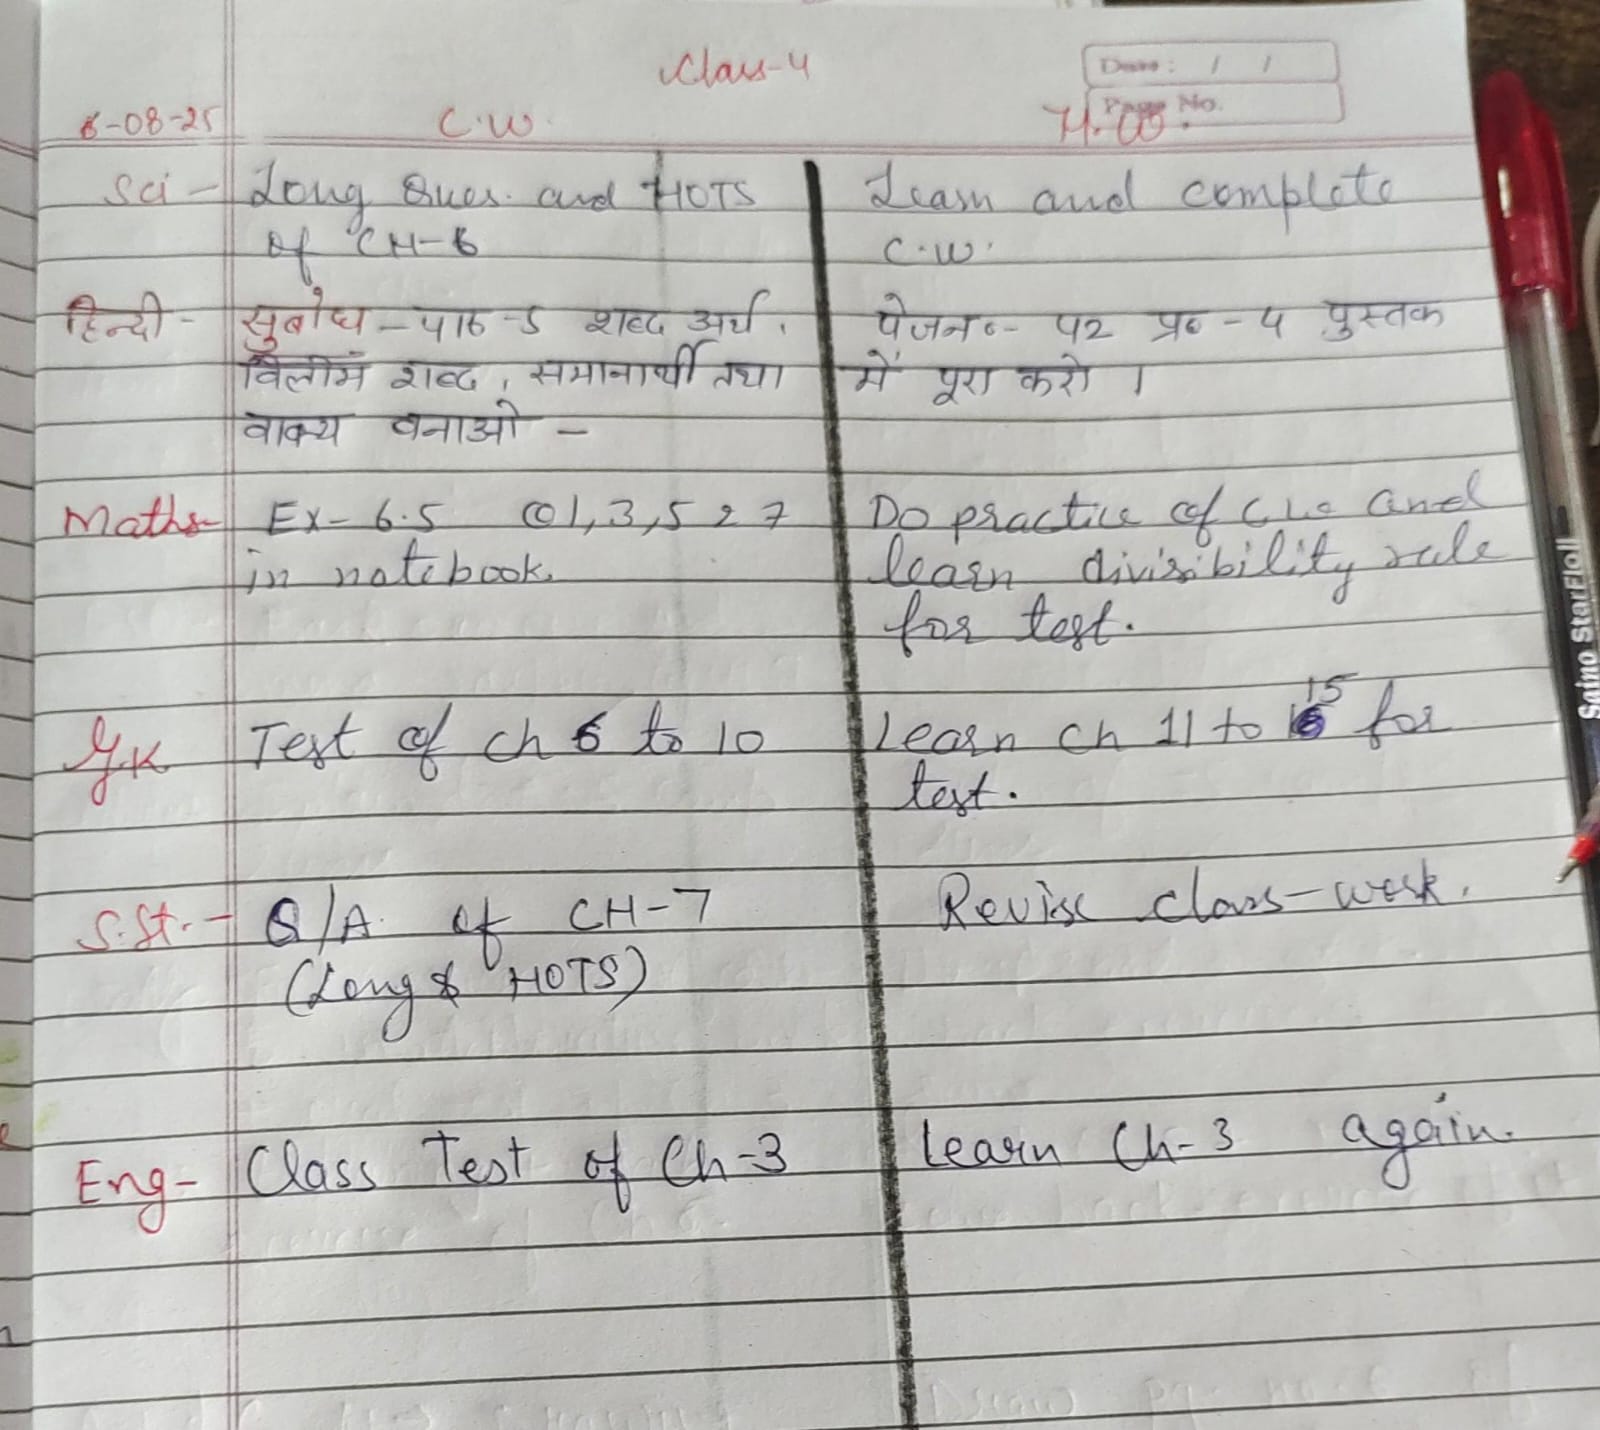 Class-4
Date: / /
Page No.
6-08-25 C.W. H.W.
Sci - Long Ques. and HOTS Learn and complete
of CH-6 C.W.
हिन्दी - सुबोध - पाठ -5 शब्द अर्थ, पेजन०- 42 प्र० - 4 पुस्तक
विलोम शब्द, समानार्थी तथा में पूरा करो ।
वाक्य बनाओ -
Maths- Ex- 6.5 Q1,3,5 2 7 Do practice of C.W. and
in notebook. learn divisibility rule
for test.
G.K Test of ch 6 to 10 Learn ch 11 to 15 for
test.
S.St. - Q/A. of CH-7 Revise class-work.
(Long & HOTS)
Eng- Class Test of Ch-3 Learn Ch-3 again.